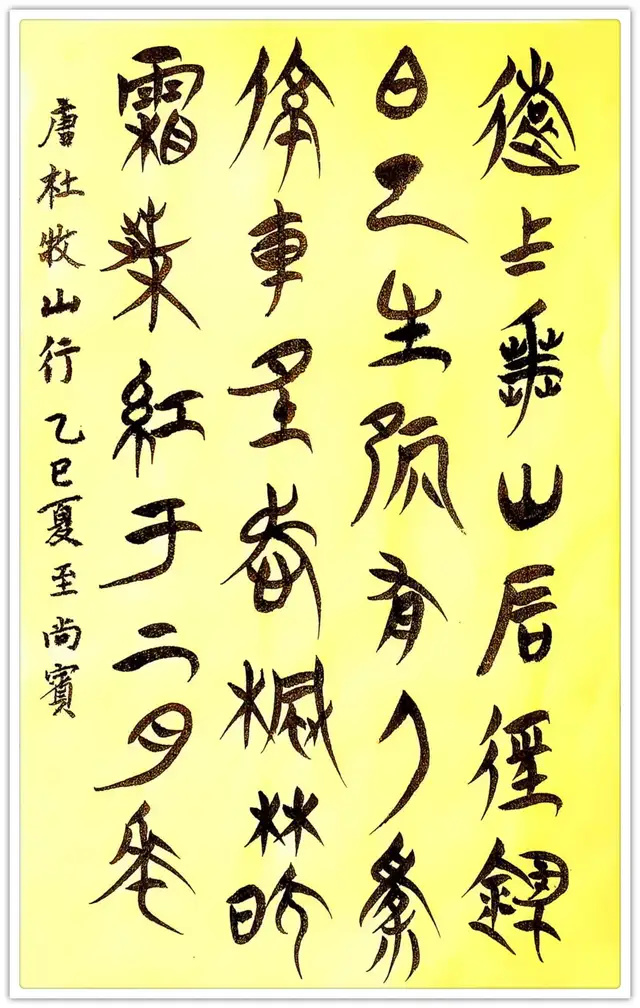 遠上寒山石徑斜
白云生処有人家
停車坐愛楓林晚
霜葉紅于二月花
唐杜牧山行乙巳夏至尚賓